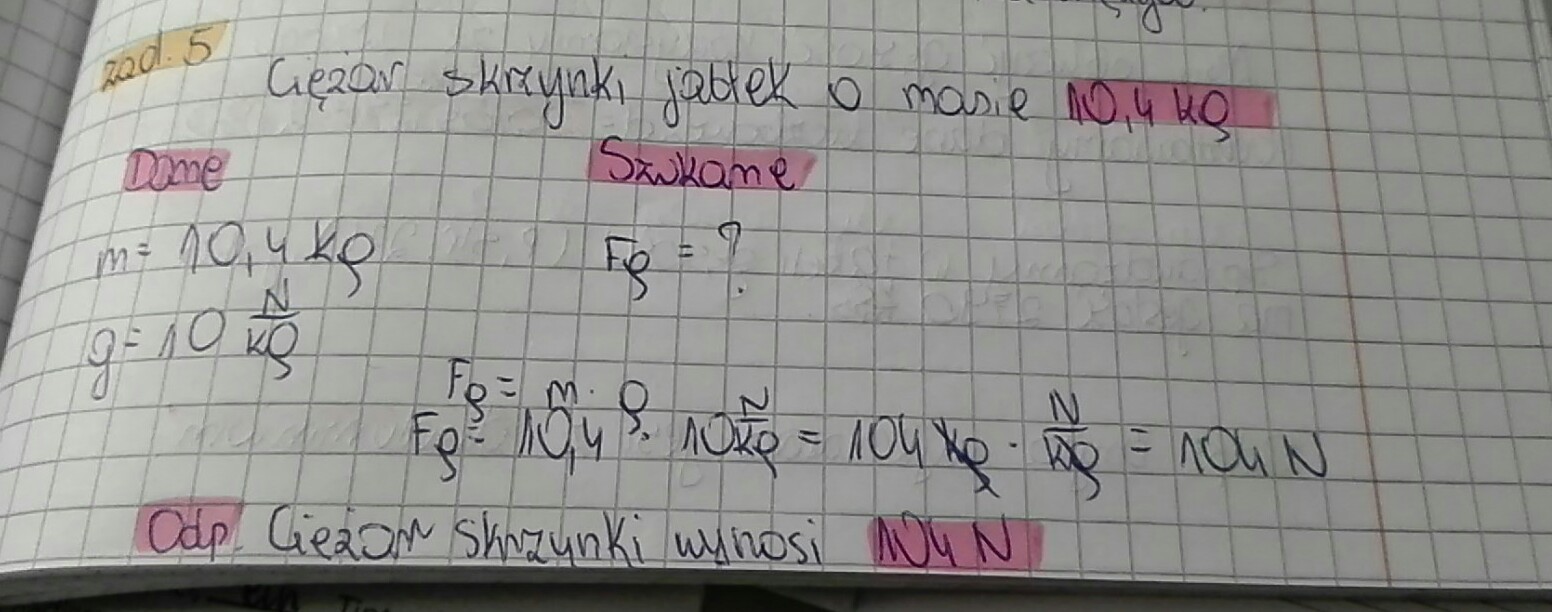 zad. 5
Ciężar skrzynki jabłek o masie 10,4 kg
Dane Szukane
m = 10,4 kg Fg = ?
g = 10 N/kg
Fg = m · g
Fg = 10,4 · 10 N/kg = 104 kg · N/kg = 104 N
Odp. Ciężar skrzynki wynosi 104 N